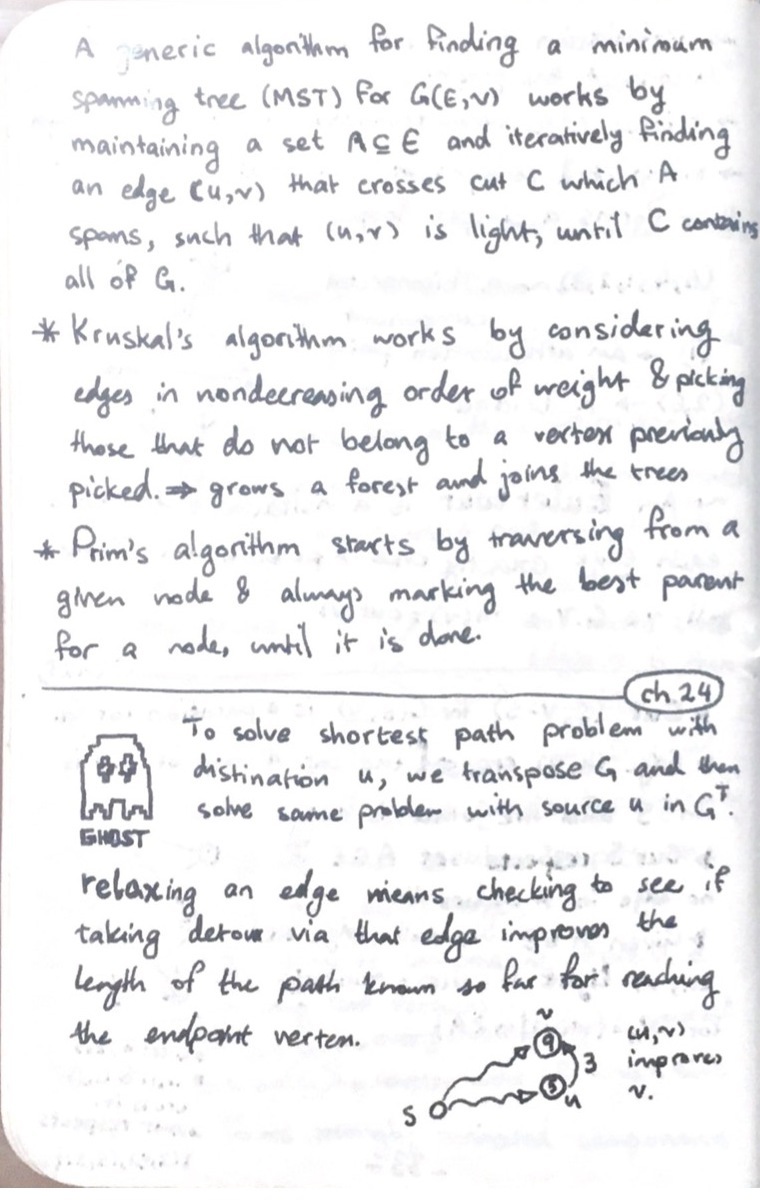 A generic algorithm for finding a minimum
spanning tree (MST) for G(E,V) works by
maintaining a set A⊆E and iteratively finding
an edge (u,v) that crosses cut C which A
spans, such that (u,v) is light, until C contains
all of G.
* Kruskal's algorithm works by considering
edges in nondecreasing order of weight & picking
those that do not belong to a vertex previously
picked. ⇒ grows a forest and joins the trees
* Prim's algorithm starts by traversing from a
given node & always marking the best parent
for a node, until it is done.
ch.24
To solve shortest path problem with
distination u, we transpose G and then
solve same problem with source u in Gᵀ.
GHOST
relaxing an edge means checking to see if
taking detour via that edge improves the
length of the path known so far for reaching
the endpoint vertex.
v
9
3
5
u
S
(u,v)
improves
v.